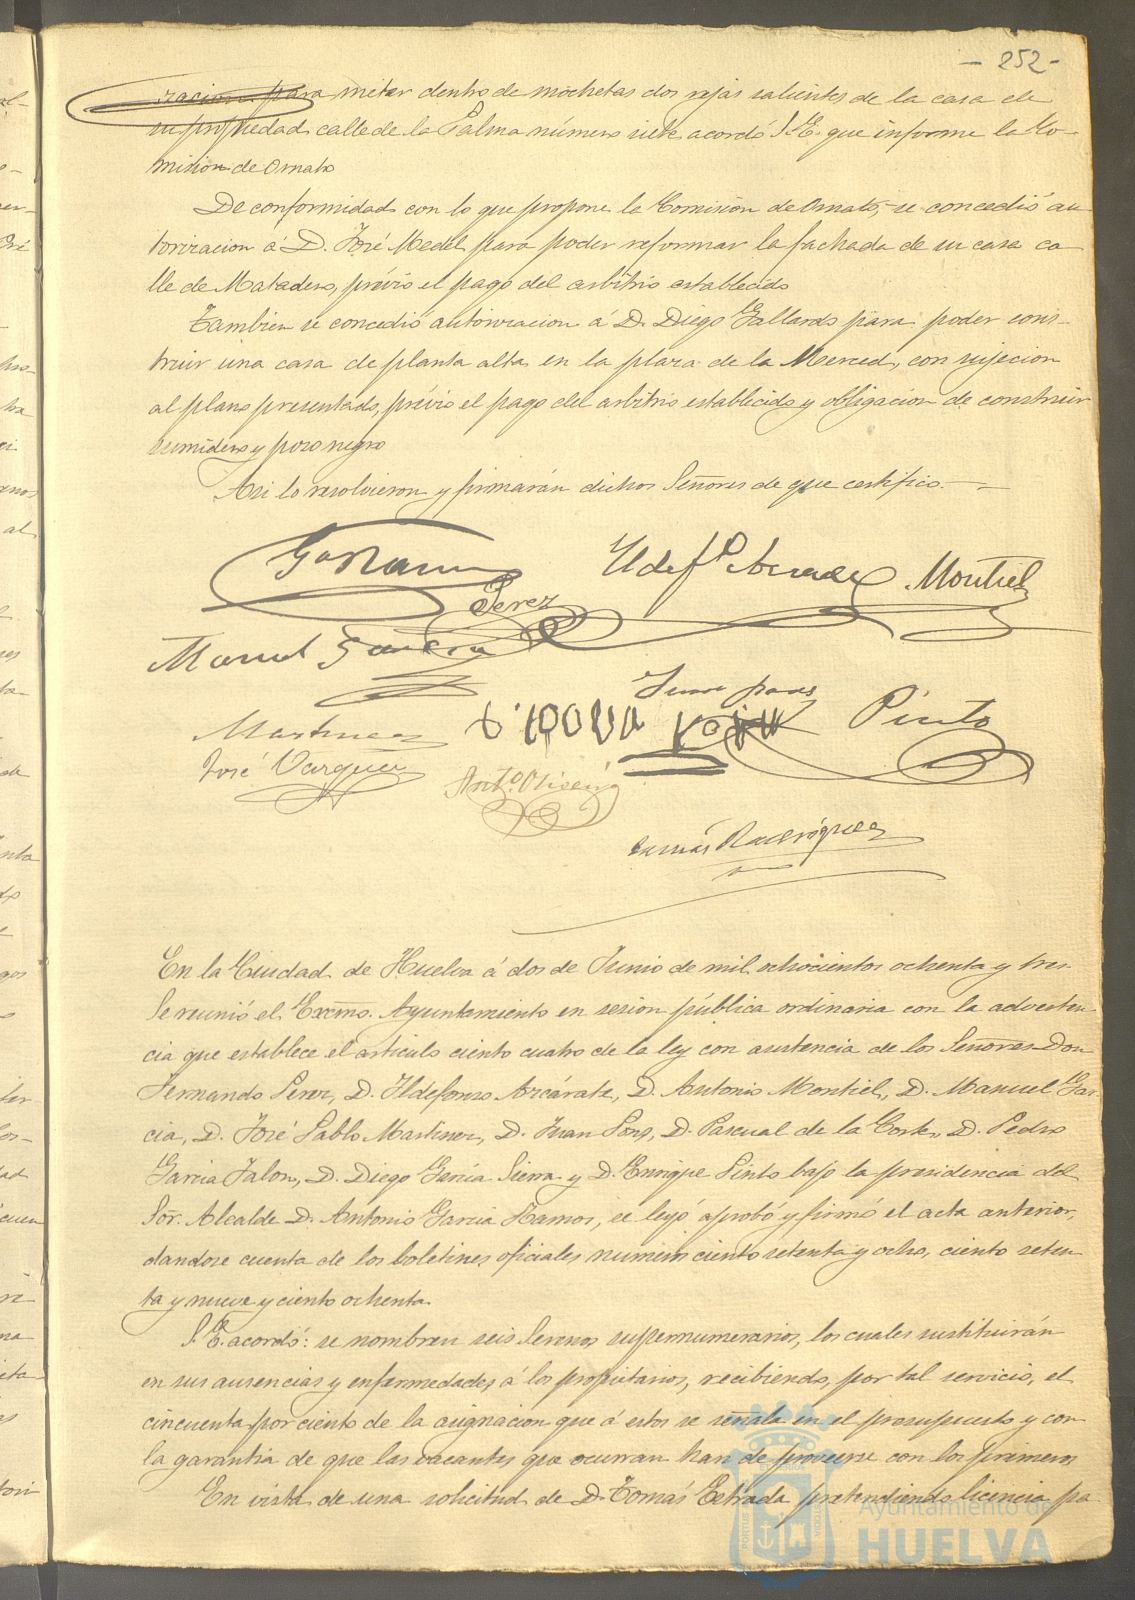 - 252-
racion para meter dentro de mochetas dos rejas salientes de la casa de
su propiedad calle de la Palma número siete acordó S.E. que informe la Co-
mision de Ornato
De conformidad con lo que propone la Comision de Ornato, se concedió au
torizacion á D. José Medel para poder reformar la fachada de su casa ca
lle de Matadero, prévio el pago del arbitrio establecido
Tambien se concedió autorizacion á D. Diego Gallardo para poder cons-
truir una casa de planta alta en la plaza de la Merced, con sujecion
al plano presentado, prévio el pago del arbitrio establecido y obligacion de construir
sumidero y pozo negro
Asi lo resolvieron y firmarán dichos Señores de que certifico.
Ga Ramos
Ildefº Azcarate Montiel
Perez
Manuel Garcia
Juan Pons
Martinez
Pinto
José Vazquez
Antº Oliveira
Tomás Rodriguez
En la Ciudad de Huelva á dos de Junio de mil ochocientos ochenta y tres
Se reunió el Excmo. Ayuntamiento en sesion pública ordinaria con la adverten-
cia que establece el articulo ciento cuatro de la ley con asistencia de los Señores Don
Fernando Perez, D. Ildefonso Azcárate, D. Antonio Montiel, D. Manuel Gar-
cia, D. José Pablo Martinez, D. Juan Pons, D. Pascual de la Corte, D. Pedro
Garcia Jalon, D. Diego Garcia Sierra y D. Enrique Pinto bajo la presidencia del
Sor. Alcalde D. Antonio Garcia Ramos, se leyó aprobó y firmó el acta anterior,
dandose cuenta de los boletines oficiales numeros ciento setenta y ocho, ciento seten-
ta y nueve y ciento ochenta.
S.E. acordó: se nombren seis Serenos supernumerarios, los cuales sustituirán
en sus ausencias y enfermedades á los propietarios, recibiendo, por tal servicio, el
cincuenta por ciento de la asignacion que á estos se señala en el presupuesto y con
la garantia de que las vacantes que ocurran han de proveerse con los primeros
En vista de una solicitud de D. Tomás Estrada pretendiendo licencia pa
Ayuntamiento de
HUELVA